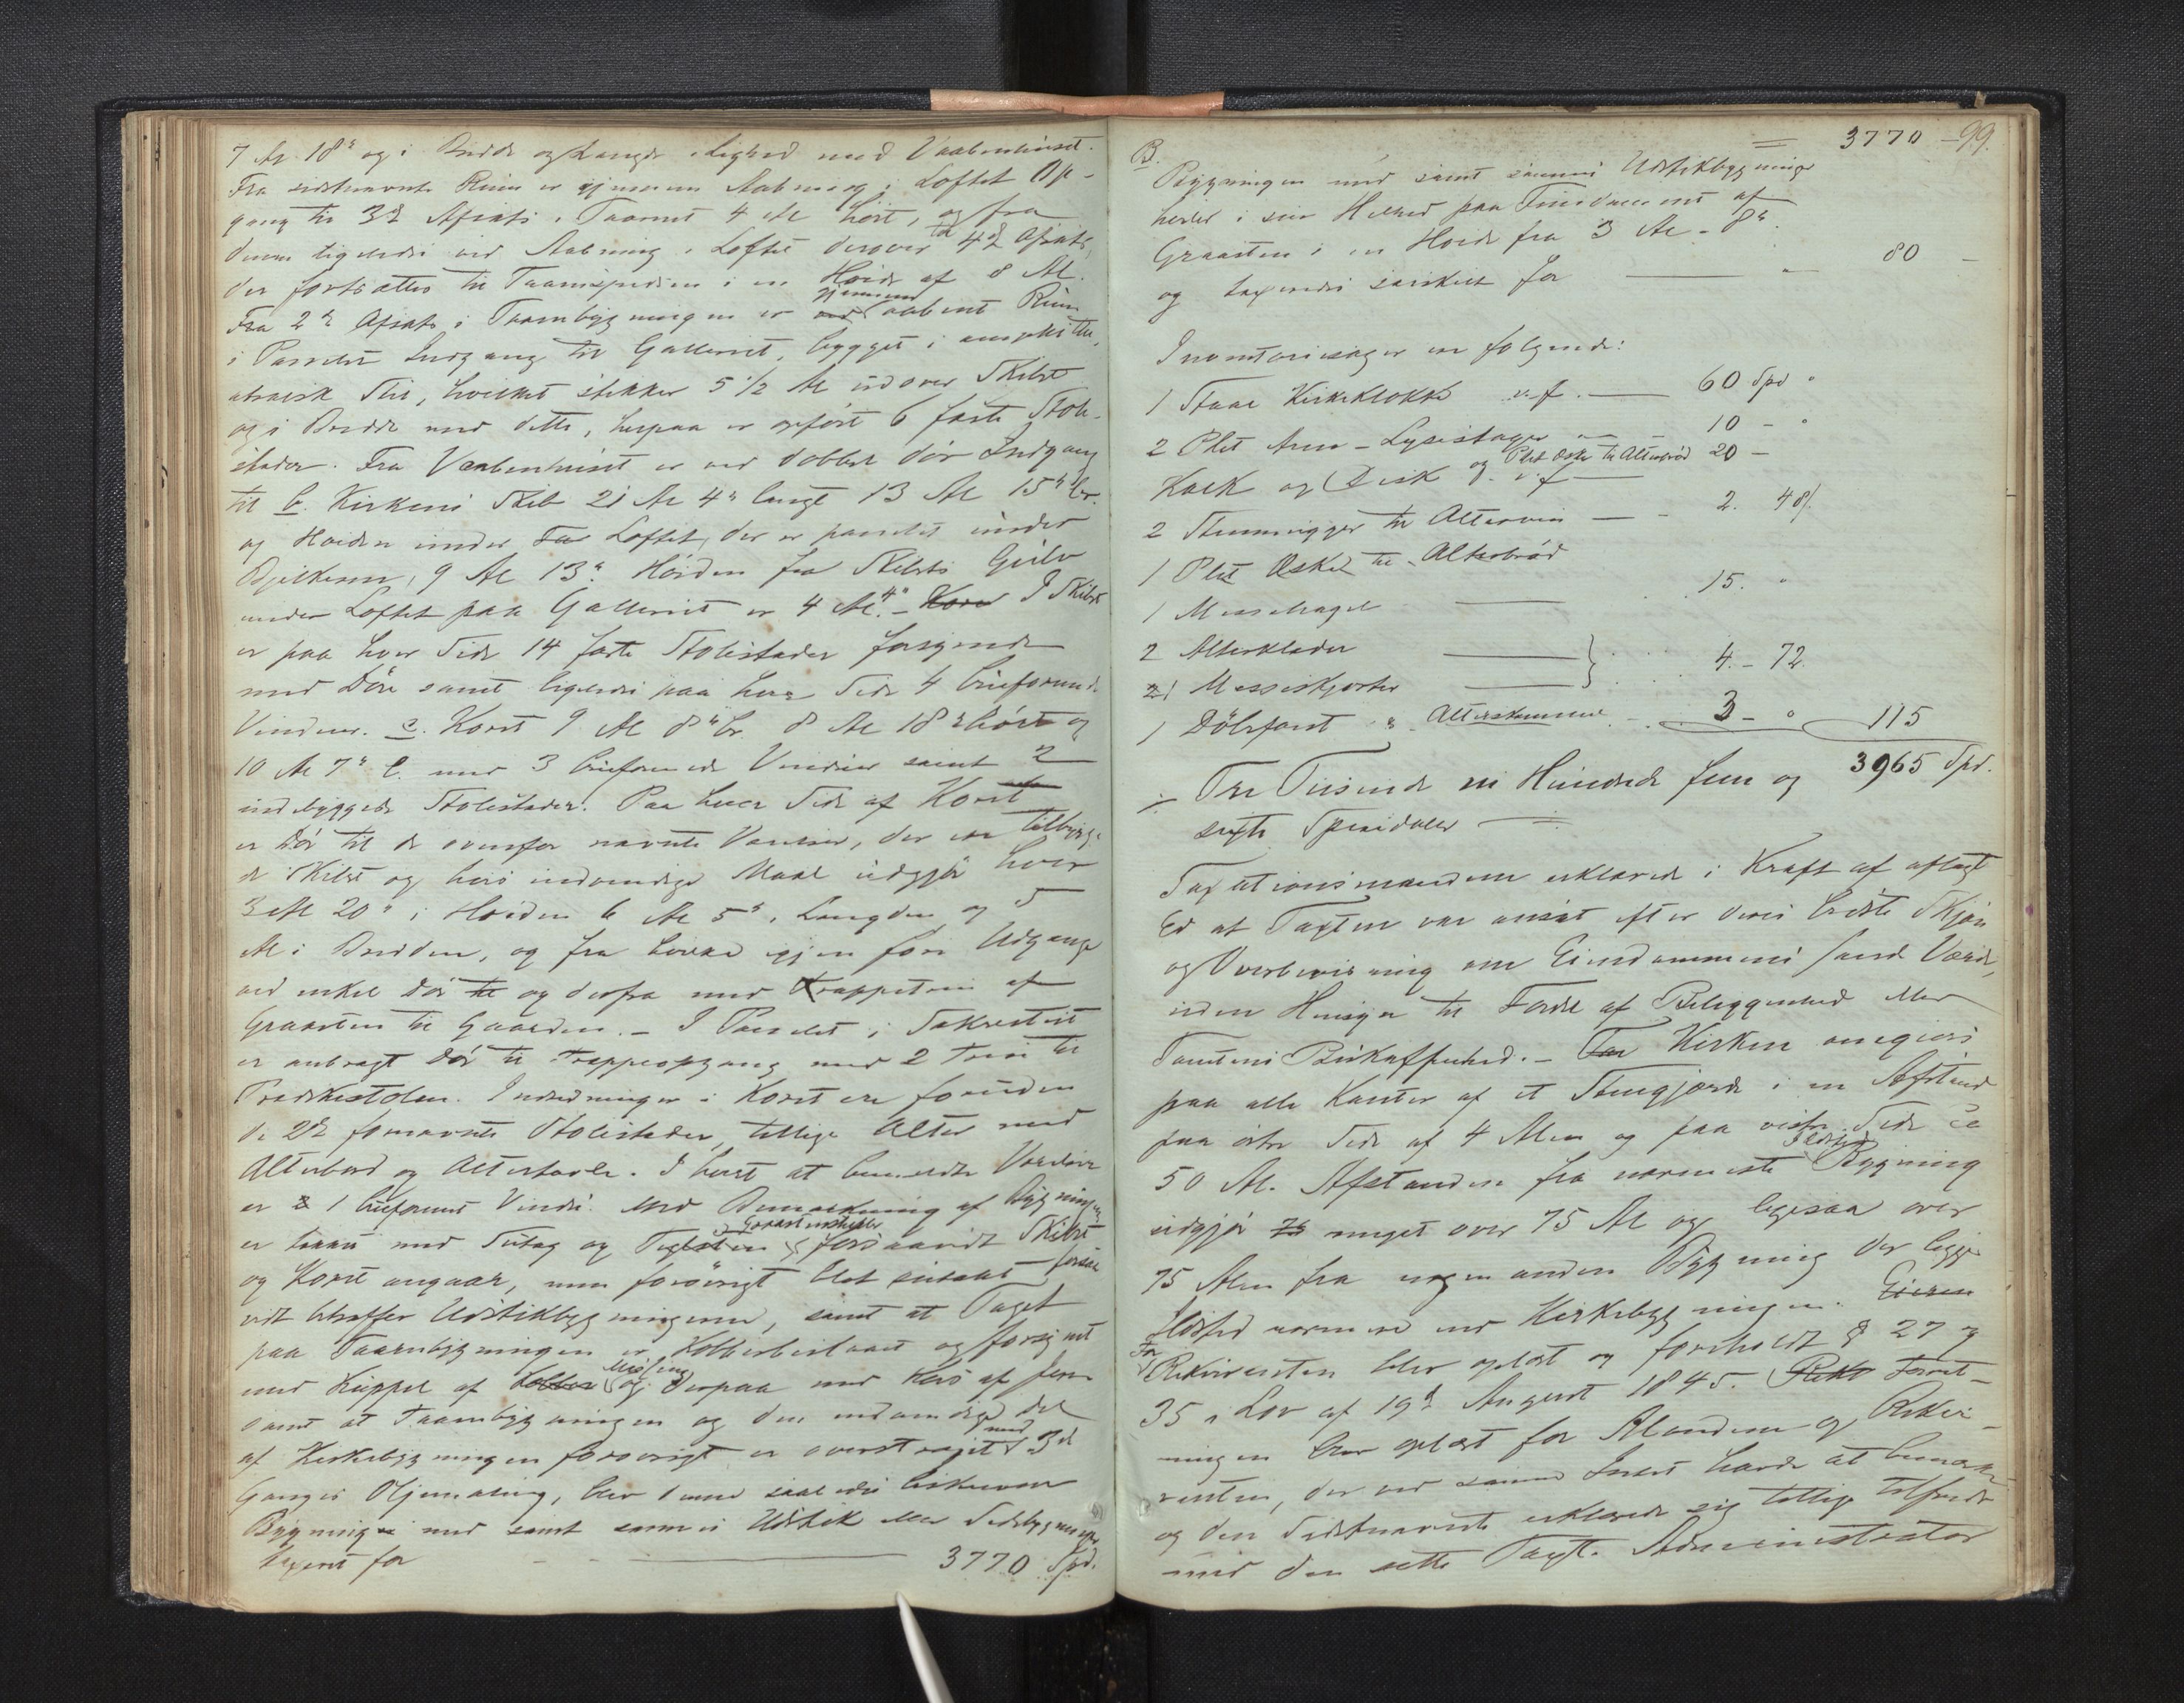 7 Al 18" og i Bredde og Længde i Lighed med Vaabenhuset.
Fra sidstnævnte Rum er gjennem Aabning i Loftet Op-
gang til 3die Afsats i Taarnet 4 Al høit, og fra
denne ligeledes ved Aabning i Loftet derover til 4de Afsats,
der fortsættes til Taarnspidsen i en Høide af 8 Al.
Fra 2den Afsats i Taarnbygningen er ved gjennem aabent Rum
i Panelet Indgang til Galleriet, bygget i amphithe-
atralsk Stiil, hvilket stikker 5 1/2 Al udover Skibet
og i Bredde med dette, herpaa er opført 6 faste Stole-
stader. Fra Vaabenhuset er ved dobbelt Dør Indgang
til b. Kirkens Skib 21 Al 4" langt 13 Al 15" br.
og Høiden under Loftet, der er panelet under
Bjelkerne, 9 Al 13". Høiden fra Skibets Gulv
under Loftet paa Galleriet er 4 Al. 4" - Koret I Skibet
er paa hver Side 14 faste Stolestader forsynede
med Døre samt ligeledes paa hver Side 4 bueformede
Vinduer. c. Koret 9 Al 8" br. 8 Al 18" høit og
10 Al 7" l. med 3 bueformede Vinduer samt 2
indbyggede Stolestader. Paa hver Side af Koret
er Dør til de ovenfor nævnte Værelser, der ere tilbygge-
de Skibet og hvis indvendige Maal udgjør hver
3 Al 20" i Høiden 6 Al 5" i Længden og 5
Al i Bredden, og fra hvilke igjen fører Udgange
ved enkel Dør til og derfra med Trappetrin af
Graasten til Gaarden. - I Panelet i Sakrestiet
er anbragt Dør til Trappeopgang med 2 Trin til
Prædikestolen. Indredninger i Koret ere foruden
de 2de fornævnte Stolestader, tillige Alter med
Alterbord og Altertavle. I hvert at bemeldte Værelser
er 1 bueformet Vindu. Med Bemærkning af Bygningen
er tækket med Sutag og Teglsten og Graastenshæller forsaavidt Skibet
og Koret angaar, men forøvrigt blot sutækt forsaa
vidt betræffer Udstikbygningerne, samt at Taget
paa Taarnbygningen er Kobberbeslaaet og forsynet
med Kuppel af Kobber Messing og derpaa med Kors af Jern
samt at Taarnbygningen og den indvendige Del
af Kirkebygningen forøvrigt er overstrøget med 3de
Ganges Oljemaling, blev denne saaledes beskrevne
Bygning med samt sammes Udstik eller Sidebygninger
taxeret for - - - 3770 Spd.
3770 - 99.
B.
Bygningen med samt sammes Udstikbygninger
hviler i sin Helhed paa Fundament af
Graasten i en Høide fra 3 Al - 8".
og taxeredes særskilt for - " 80 -
Inventariesager ere følgende:
1 Stor Kirkeklokke v. f. - 60 Spd "
2 Plet Arm-Lysestager " - 10 - "
Kalk og Disk og Plet Æske til Alterbrød v. f. 20 -
2 Steenmugger til Altervin - - 2. 48/.
1 Plet Æske til Alterbrød
1 Messehagel - 15. "
2 Alterklæder
2 1 Messeskjorter } 4. - 72.
1 Døbefont " Alterskammel - 3 - " 115
÷ Tre Tusinde ni Hundrede fem og 3965 Spd.
sexti Speciedaler ÷
Taxationsmændene erklærede i Kraft af aflagt
Ed at Taxten var ansat efter deres bedste Skjøn
og Overbevisning om Eiendommens sande Værdi,
uden Hensyn til Fordel af Beliggenhed eller
Tomtens Beskaffenhed. - Kirken omgives
paa alle Kanter af et Steengjærde i en Afstand
paa østre Side af 4 Alen og paa vestre Side ca
50 Al. Afstanden fra nærmeste Ildsted Bygning
udgjør 75 noget over 75 Al og ligesaa over
75 Alen fra nogen anden Bygning der ligger
Ildsted nærmere end Kirkebygningen. Eieren
For Rekvirenten blev oplæst og foreholdt § 27 og
35 i Lov af 19de August 1845. Rekv Forret-
ningen blev oplæst for Mændene og Rekvi-
renten, der ved samme Intet havde at bemærke
og den Sidstnævnte erklærede sig tillige tilfreds
med den satte Taxt. Administrator